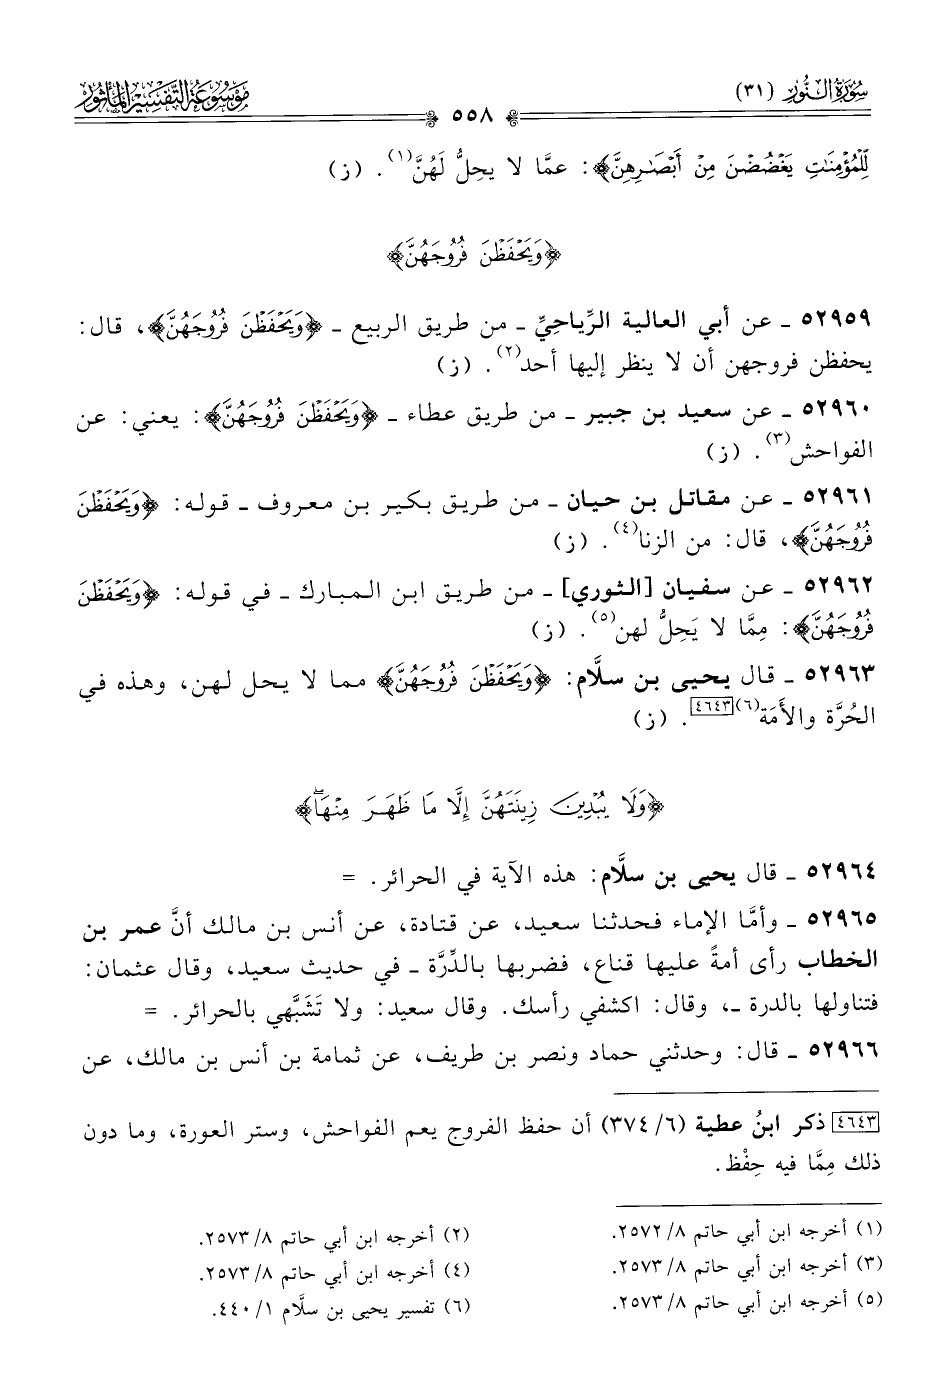 سُورَةُ النُّورِ (٣١)
٥٥٨
مَوْسُوعَةُ التَّفْسِيرِ المَأْثُورِ
لِّلْمُؤْمِنَٰتِ يَغْضُضْنَ مِنْ أَبْصَٰرِهِنَّ﴾: عمَّا لا يحِلُّ لَهُنَّ(١). (ز)
﴿وَيَحْفَظْنَ فُرُوجَهُنَّ﴾
٥٢٩٥٩ ـ عن أبي العالية الرِّياحيِّ ـ من طريق الربيع ـ ﴿وَيَحْفَظْنَ فُرُوجَهُنَّ﴾، قال:
يحفظن فروجهن أن لا ينظر إليها أحد(٢). (ز)
٥٢٩٦٠ ـ عن سعيد بن جبير ـ من طريق عطاء ـ ﴿وَيَحْفَظْنَ فُرُوجَهُنَّ﴾: يعني: عن
الفواحش(٣). (ز)
٥٢٩٦١ ـ عن مقاتل بن حيان ـ من طريق بكير بن معروف ـ قوله: ﴿وَيَحْفَظْنَ
فُرُوجَهُنَّ﴾، قال: من الزنا(٤). (ز)
٥٢٩٦٢ ـ عن سفيان [الثوري] ـ من طريق ابن المبارك ـ في قوله: ﴿وَيَحْفَظْنَ
فُرُوجَهُنَّ﴾: مِمَّا لا يَحِلُّ لهن(٥). (ز)
٥٢٩٦٣ ـ قال يحيى بن سلَّام: ﴿وَيَحْفَظْنَ فُرُوجَهُنَّ﴾ مما لا يحل لهن، وهذه في
الحُرَّة والأَمَة(٦)[٤٦٤٣]. (ز)
﴿وَلَا يُبْدِينَ زِينَتَهُنَّ إِلَّا مَا ظَهَرَ مِنْهَاۖ﴾
٥٢٩٦٤ ـ قال يحيى بن سلَّام: هذه الآية في الحرائر. =
٥٢٩٦٥ ـ وأمَّا الإماء فحدثنا سعيد، عن قتادة، عن أنس بن مالك أنَّ عمر بن
الخطاب رأى أمةً عليها قناع، فضربها بالدِّرَّة ـ في حديث سعيد، وقال عثمان:
فتناولها بالدرة ـ، وقال: اكشفي رأسك. وقال سعيد: ولا تَشَبَّهي بالحرائر. =
٥٢٩٦٦ ـ قال: وحدثني حماد ونصر بن طريف، عن ثمامة بن أنس بن مالك، عن
[٤٦٤٣] ذكر ابنُ عطية (٦/ ٣٧٤) أن حفظ الفروج يعم الفواحش، وستر العورة، وما دون
ذلك مِمَّا فيه حِفْظ.
(١) أخرجه ابن أبي حاتم ٨/ ٢٥٧٢.
(٢) أخرجه ابن أبي حاتم ٨/ ٢٥٧٣.
(٣) أخرجه ابن أبي حاتم ٨/ ٢٥٧٣.
(٤) أخرجه ابن أبي حاتم ٨/ ٢٥٧٣.
(٥) أخرجه ابن أبي حاتم ٨/ ٢٥٧٣.
(٦) تفسير يحيى بن سلَّام ١/ ٤٤٠.